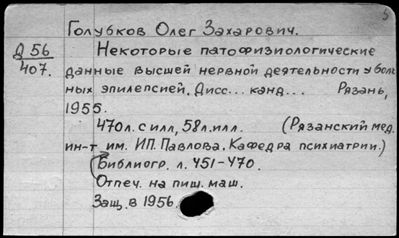 5
Голубков Олег Захарович.
Д 56
407.
Некоторые патофизиологические
данные высшей нервной деятельности у боль
ных эпилепсией. Дисс... канд... Рязань,
1955.
470л. с илл, 58л. илл. (Рязанский мед.
ин-т им. И.П. Павлова. Кафедра психиатрии.)
Библиогр. л. 451-470.
Отпеч. на пиш. маш.
Защ. в 1956.